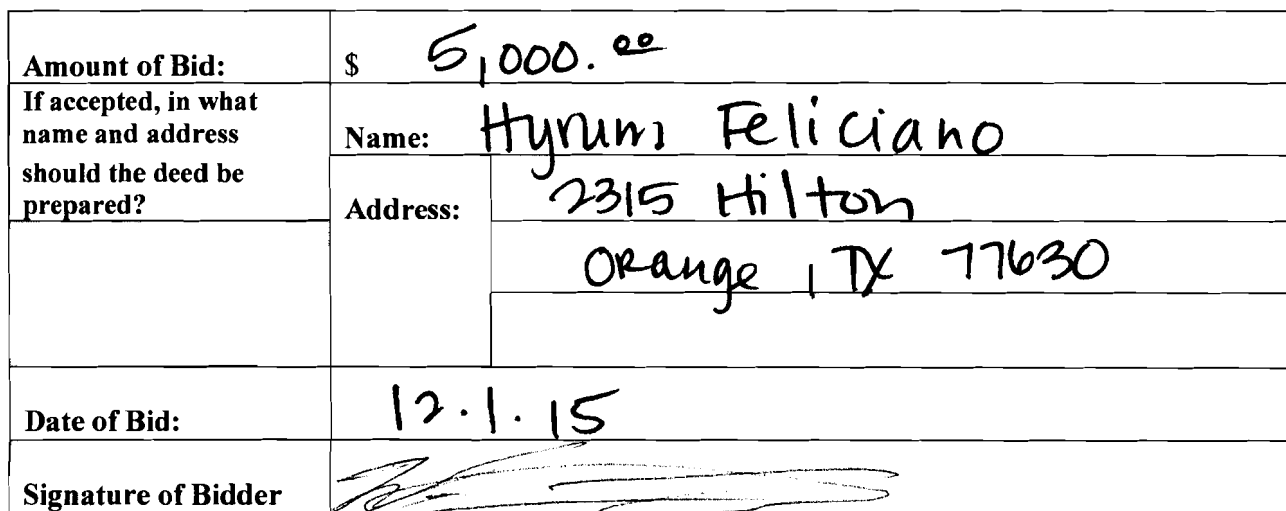 Amount of Bid: $ 5,000.00
If accepted, in what
name and address
should the deed be
prepared?
Name: Hyrum Feliciano
Address: 2315 Hilton
Orange, TX 77630
Date of Bid: 12.1.15
Signature of Bidder